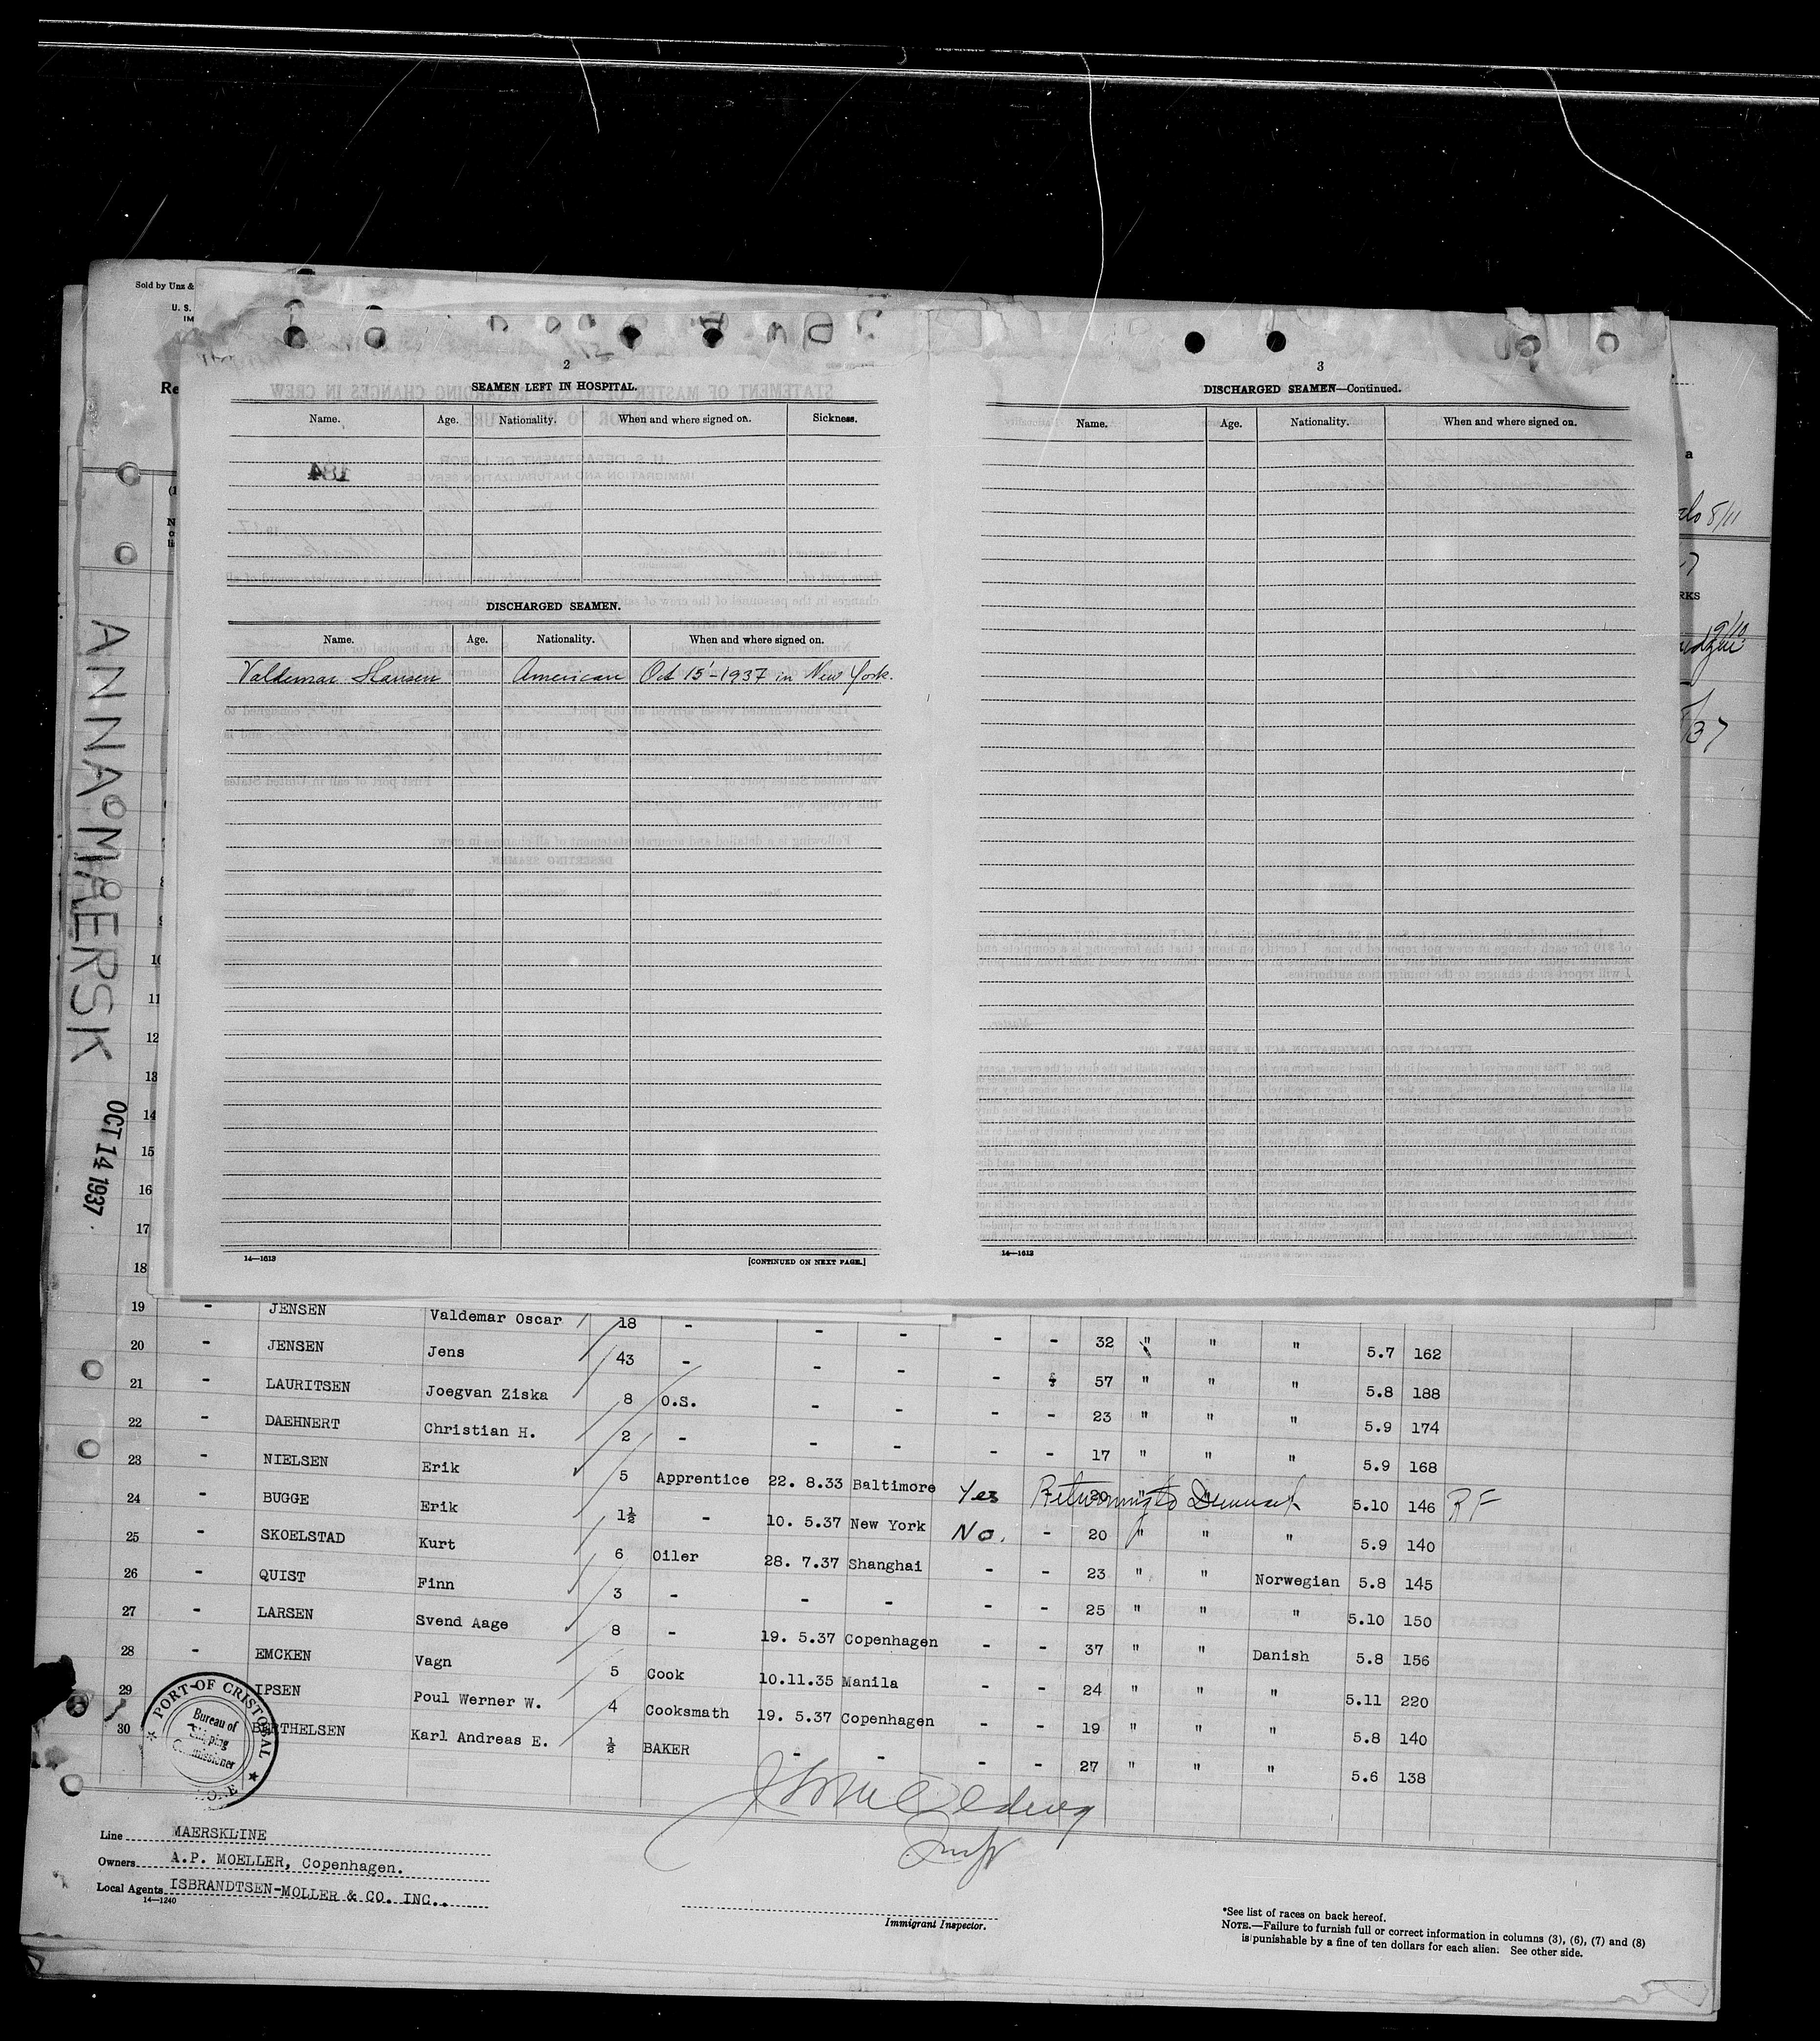 Sold by Unz &
U. S.
IM
Re
2
SEAMEN LEFT IN HOSPITAL.
Name. Age. Nationality. When and where signed on. Sickness.
184
DISCHARGED SEAMEN.
Name. Age. Nationality. When and where signed on.
Valdemar Hansen American Oct 15'-1937 in New York.
14—1613 [CONTINUED ON NEXT PAGE.]
3
DISCHARGED SEAMEN—Continued.
Name. Age. Nationality. When and where signed on.
14—1613
a
5/11
RKS
9/10
/37
ANNA MÆRSK
OCT 14 1937
10
11
12
13
14
15
16
17
18
19 - JENSEN Valdemar Oscar 18 - - - - - 32 " " " 5.7 162
20 - JENSEN Jens 43 - - - - 57 " " " 5.8 188
21 - LAURITSEN Joegvan Ziska 8 O.S. - - - - 23 " " " 5.9 174
22 - DAEHNERT Christian H. 2 - - - - - 17 " " " 5.9 168
23 - NIELSEN Erik 5 Apprentice 22. 8.33 Baltimore Yes Returning to Denmark 20 " " 5.10 146 RF
24 - BUGGE Erik 1½ - 10. 5.37 New York No. - 20 " " " 5.9 140
25 - SKOELSTAD Kurt 6 Oiler 28. 7.37 Shanghai - - 23 " " Norwegian 5.8 145
26 - QUIST Finn 3 - - - - - 25 " " " 5.10 150
27 - LARSEN Svend Aage 8 - 19. 5.37 Copenhagen - - 37 " " Danish 5.8 156
28 - EMCKEN Vagn 5 Cook 10.11.35 Manila - - 24 " " " 5.11 220
29 IPSEN Poul Werner W. 4 Cooksmath 19. 5.37 Copenhagen - - 19 " " " 5.8 140
30 BERTHELSEN Karl Andreas E. ½ BAKER - - - - 27 " " " 5.6 138
PORT OF CRISTOBAL
Bureau of
Shipping
Commissioner
Line MAERSKLINE
Owners A.P. MOELLER, Copenhagen.
Local Agents ISBRANDTSEN-MOLLER & CO. INC..
14—1240
Immigrant Inspector.
*See list of races on back hereof.
NOTE.—Failure to furnish full or correct information in columns (3), (6), (7) and (8)
is punishable by a fine of ten dollars for each alien. See other side.